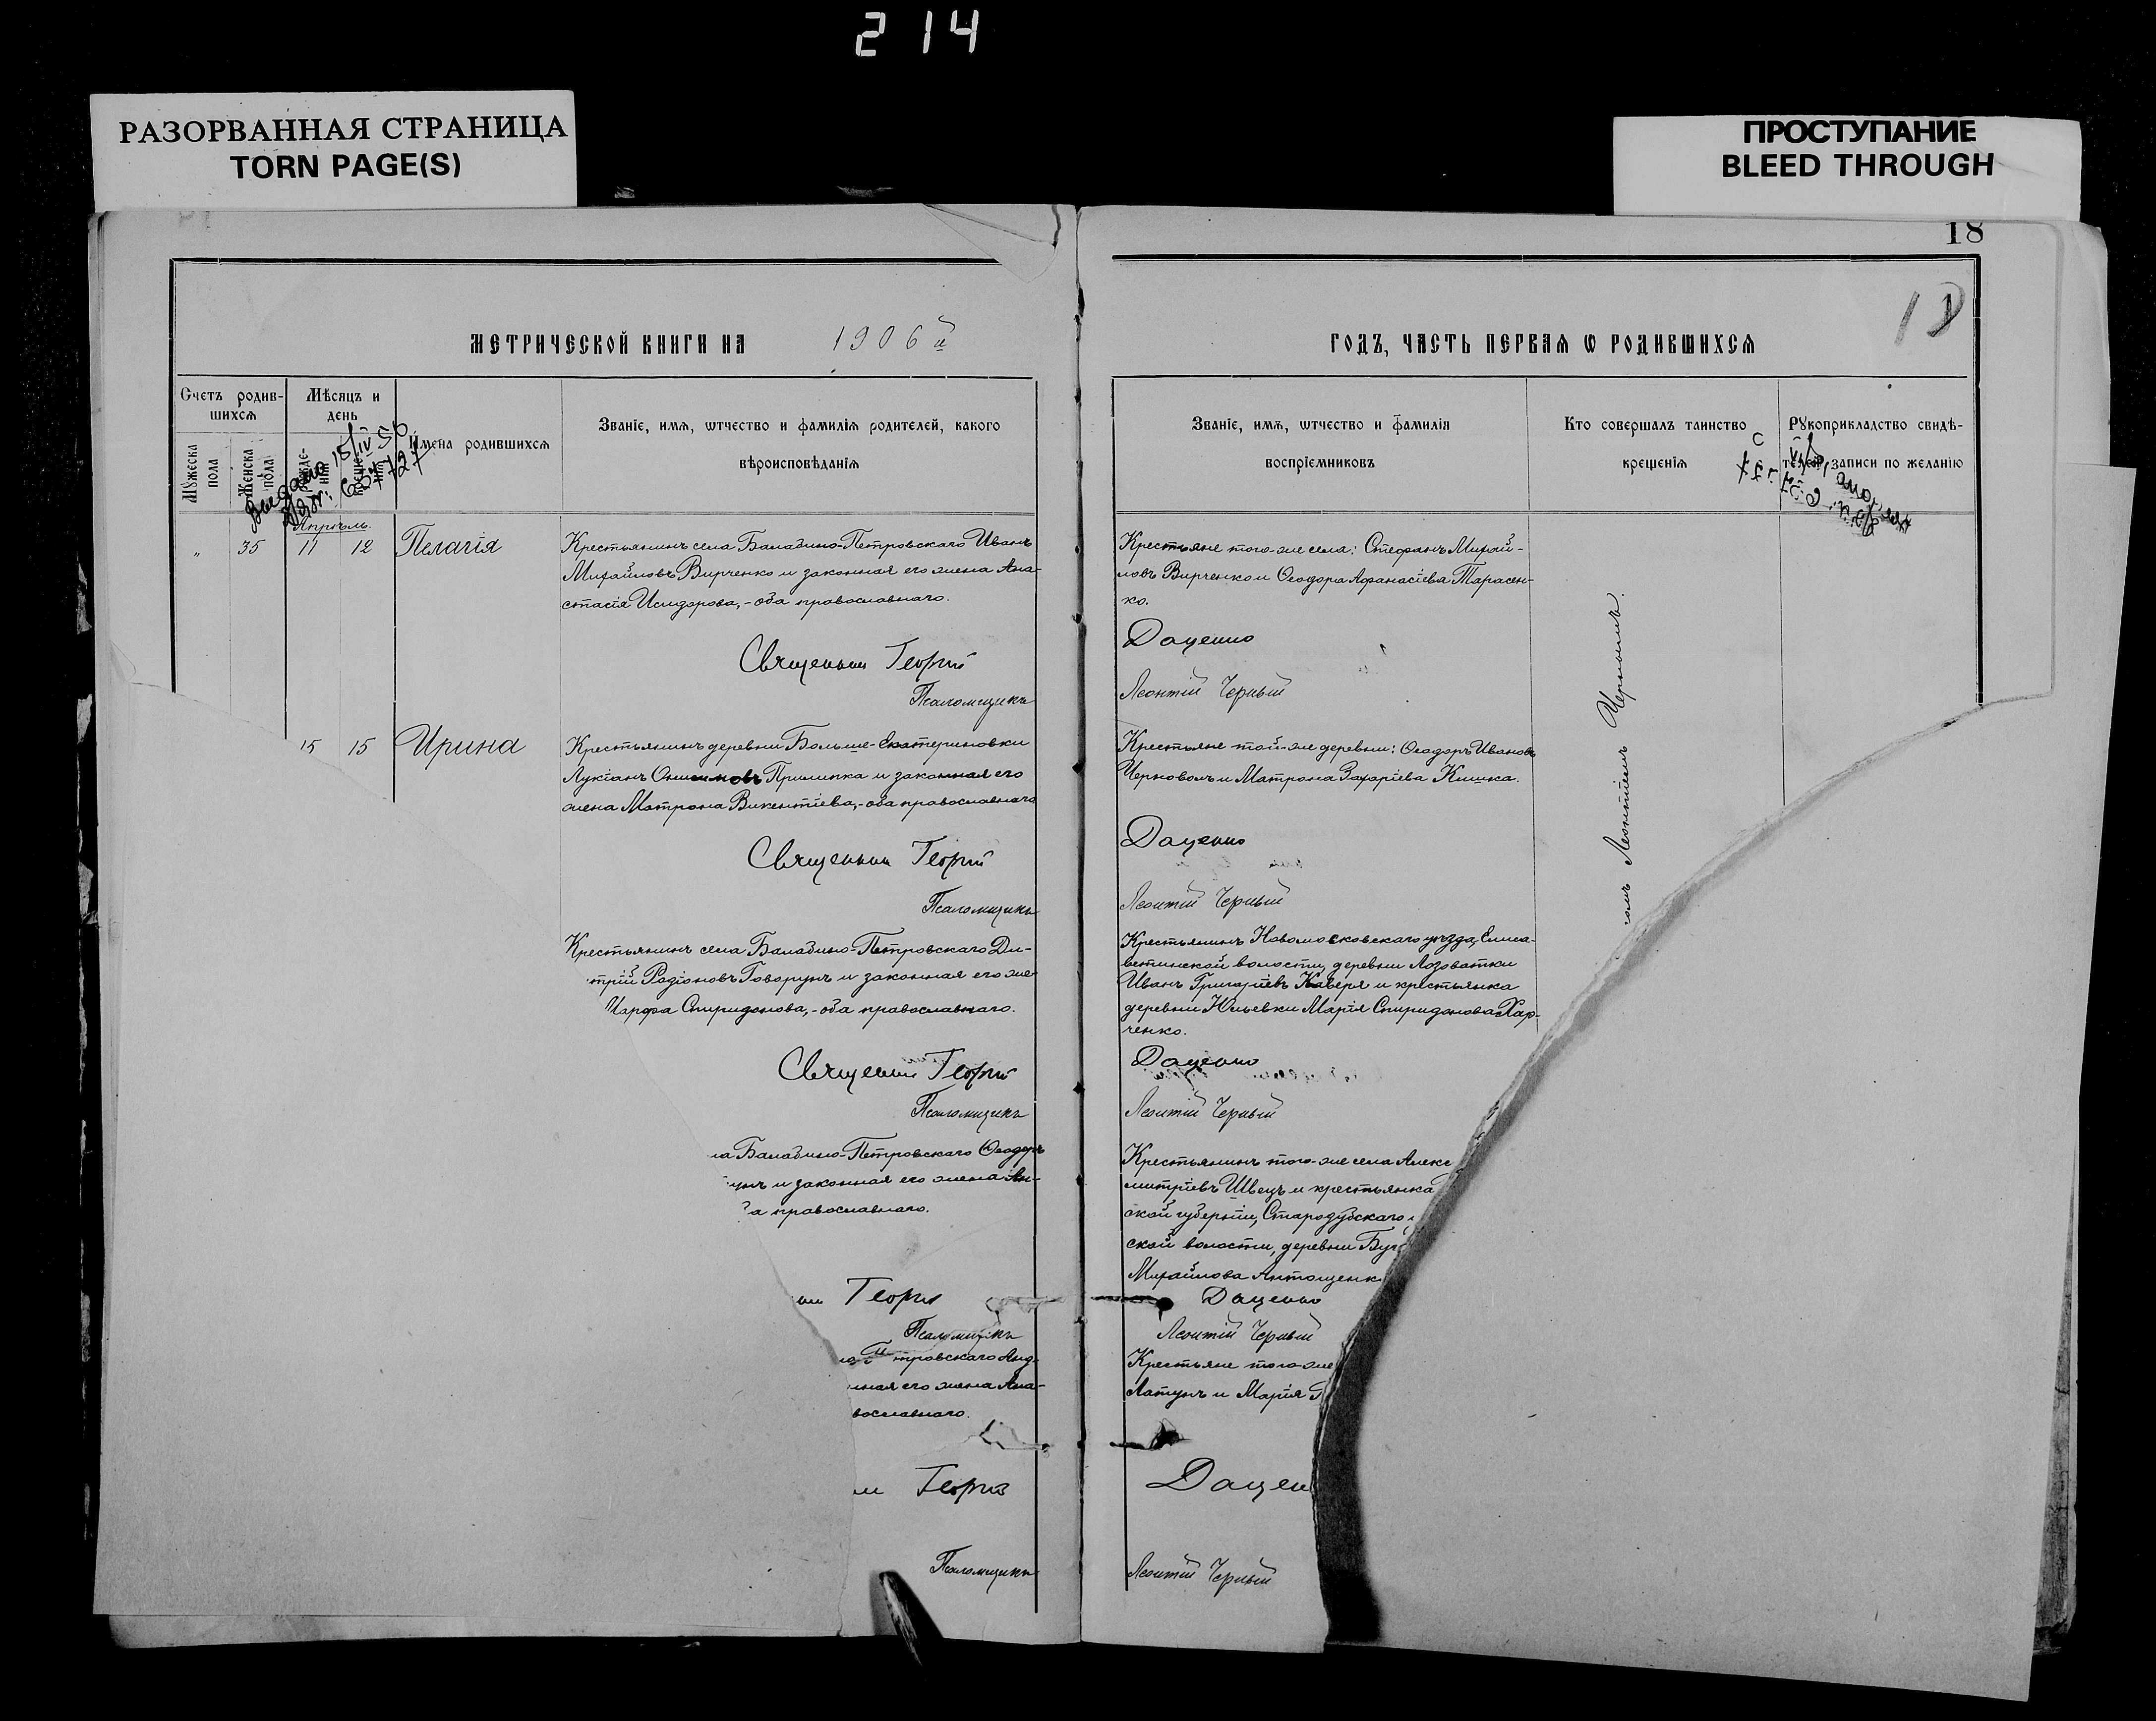 214
РАЗОРВАННАЯ СТРАНИЦА
TORN PAGE(S)
ПРОСТУПАНИЕ
BLEED THROUGH
18
МЕТРИЧЕСКОЙ КНИГИ НА 1906й
ГОДЪ, ЧАСТЬ ПЕРВАЯ Ѡ РОДИВШИХСЯ
Счетъ родив-
шихся
Мѣсяцъ и
день
Имена родившихся
Званіе, имя, ѡтчество и фамилія родителей, какого
вѣроисповѣданія
Мꙋжеска
пола
Женска
пола
Званіе, имя, ѡтчество и фамилія
воспріемниковъ
Кто совершалъ таинство
крещенія
Рꙋкоприкладство свидѣ-
записи по желанію
Выдано 18/IV 56
Апрѣль.
" 35 11 12 Пелагія
Крестьянинъ села Балабино-Петровскаго Иванъ
Михайловъ Вирченко и законная его жена Ана-
стасія Исидорова,- оба православнаго.
Священник Георгій
Псаломщикъ
Крестьяне того-же села: Стефанъ Михай-
ловъ Вирченко и Ѳеодора Афанасіева Тарасен-
ко.
Даценко
Леонтій Черный
15 15 Ирина
Крестьянинъ деревни Больше-Екатериновки
Лукіанъ Онисимовъ Прилипка и законная его
жена Матрона Викентіева,- оба православнаго
Священник Георгій
Псаломщикъ
Крестьяне той-же деревни: Ѳеодоръ Ивановъ
Черновол и Матрона Захаріева Кишка.
Даценко
Леонтій Черный
Леонтіемъ Чернымъ.
Крестьянинъ села Балабино-Петровскаго Ди-
трій Родіоновъ Говорунъ и законная его же-
Марфа Спиридонова,- оба православнаго.
Священник Георгій
Псаломщикъ
Крестьянинъ Новомосковскаго уѣзда, Елиса-
ветинской волости, деревни Лозоватки
Иванъ Григоріевъ Каверя и крестьянка
деревни Юльевки Марія Спиридонова Хар-
ченко.
Даценко
Леонтій Черный
ла Балабино-Петровскаго Ѳеодоръ
унъ и законная его жена Ан-
а православнаго.
Георгій
Псаломщикъ
Крестьянинъ того-же села Алекс
митріевъ Швецъ и крестьянка
ской губерніи, Стародубскаго
ской волости, деревни Буч
Михайлова Антощенк
Даценко
Леонтій Черный
тровскаго Анд-
нная его жена Ана-
вославнаго.
Георгій
Псаломщикъ
Крестьяне того-же
Латунъ и Марія
Дацен
Леонтій Черный